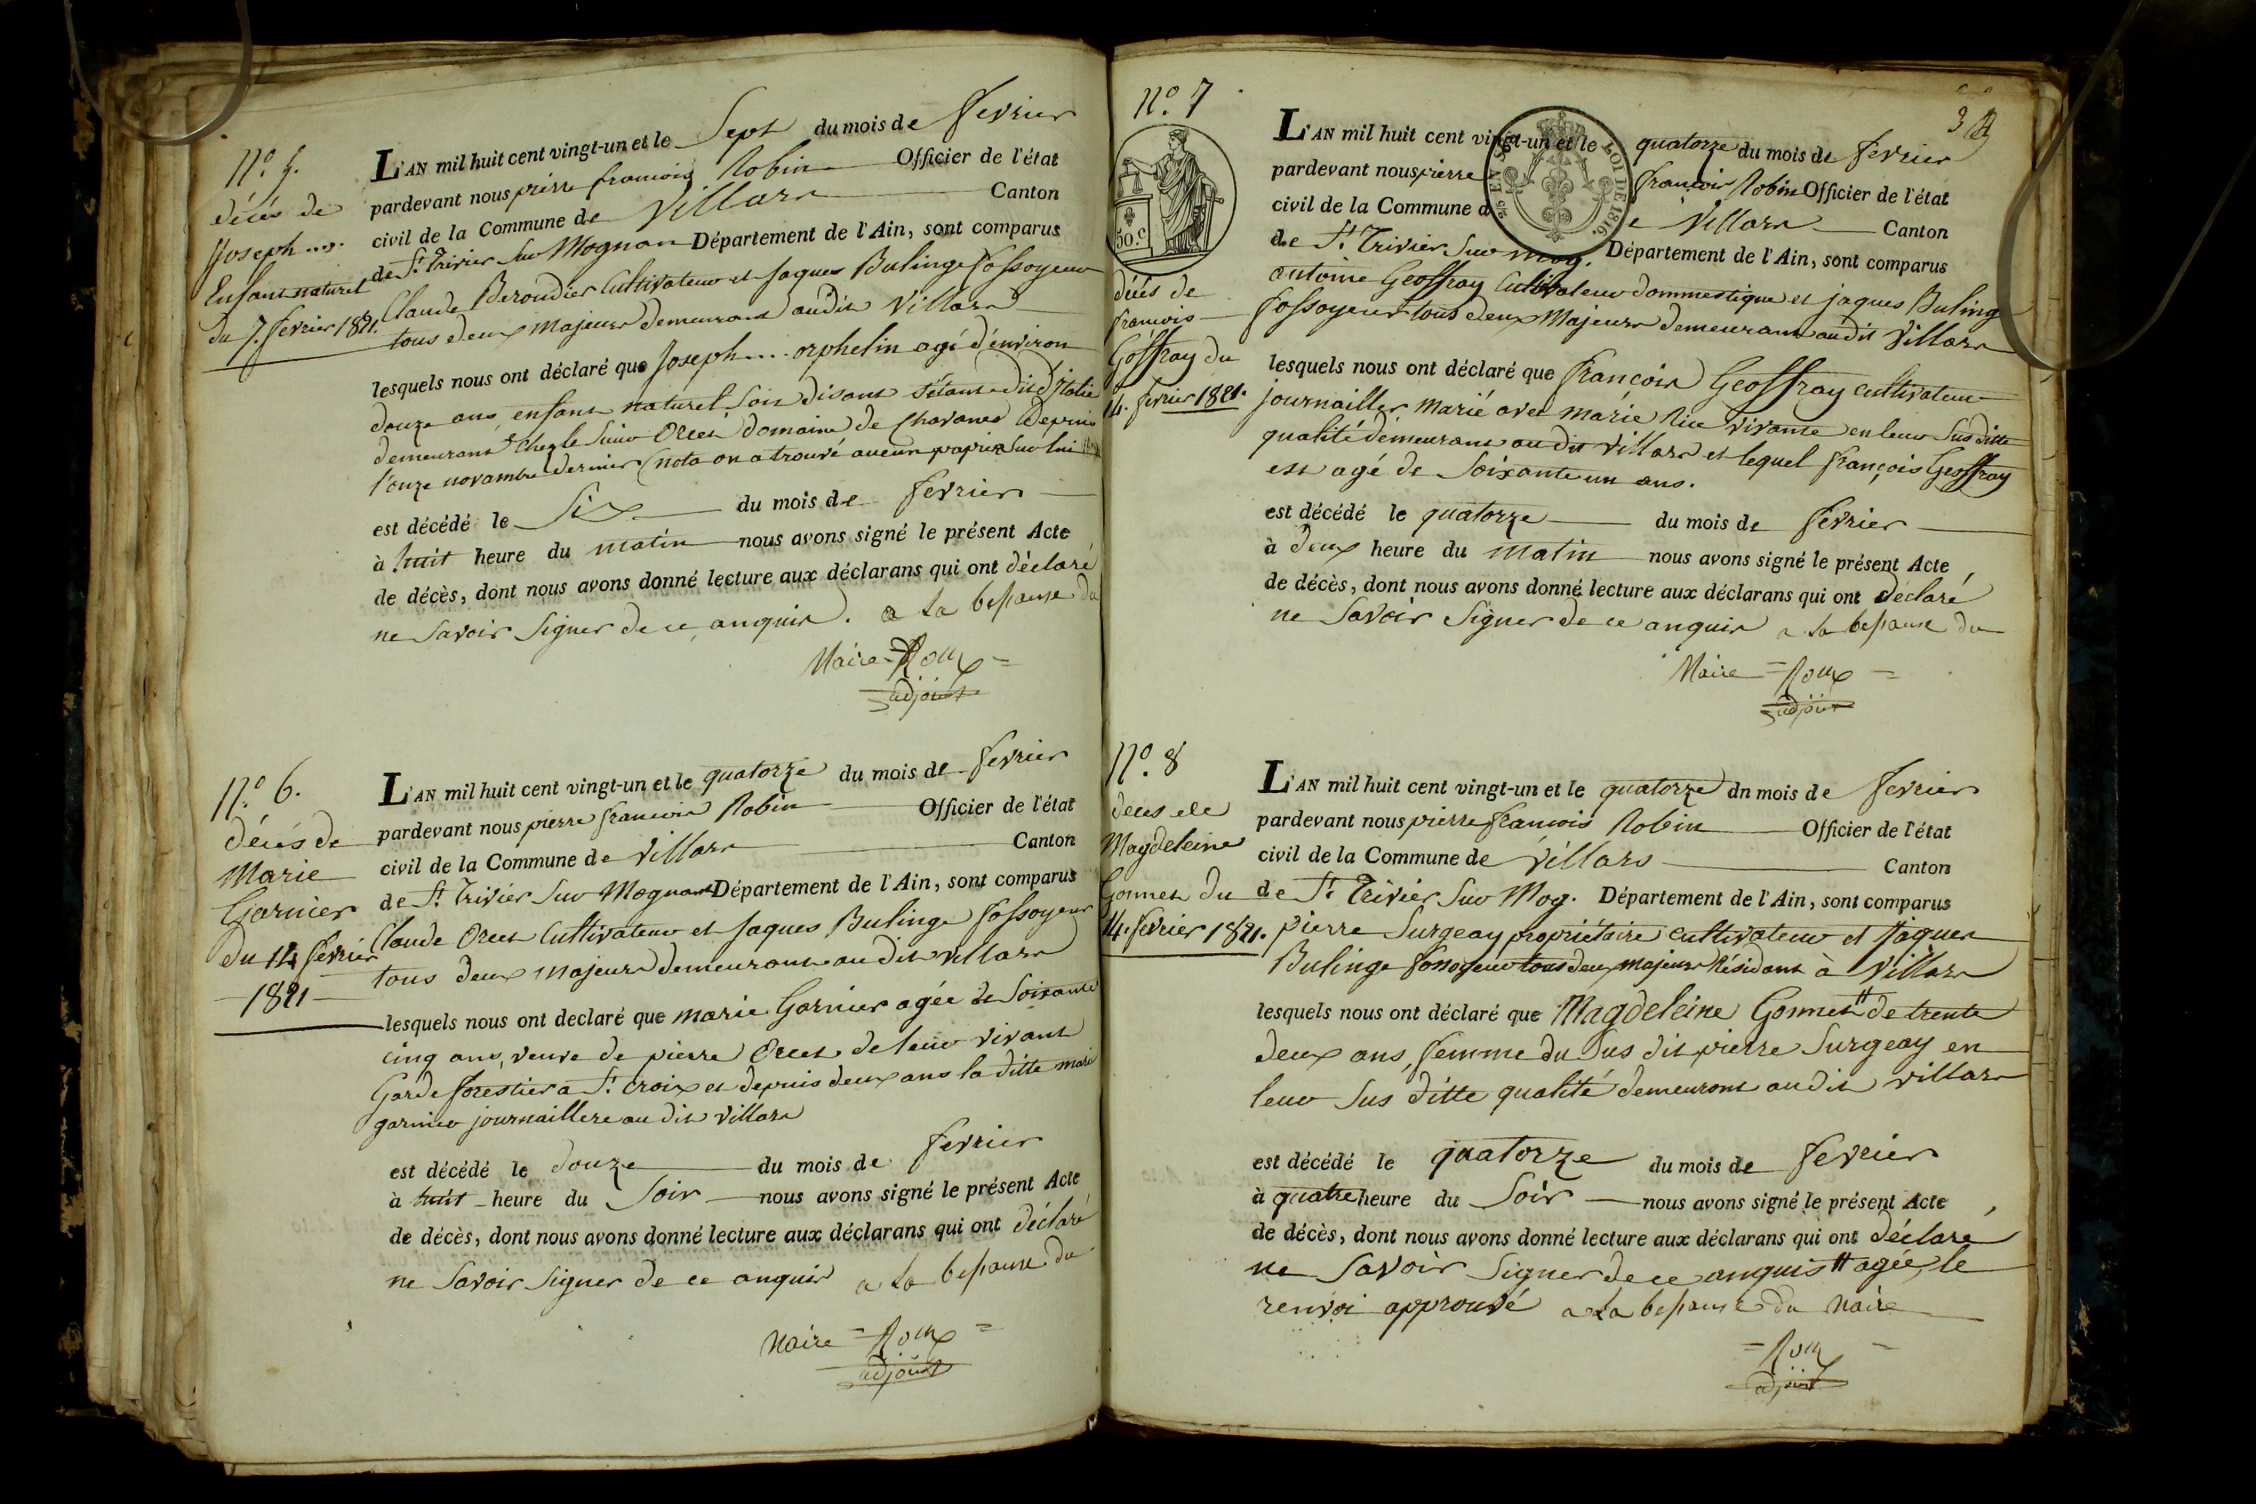 N.° 5.
décés de
Joseph ....
Enfant naturel
du 7. fevrier 1821.
L'AN mil huit cent vingt-un et le Sept du mois de fevrier
pardevant nous pierre francois Robin Officier de l'état
civil de la Commune de Villars Canton
de St. Trivier Sur Mognan Département de l'Ain, sont comparus
Claude Beroudier Cultivateur et Jaques Bulinge fossoyeur
tous deux majeurs demeurant audit Villars
lesquels nous ont déclaré que Joseph .... orphelin agé d'environ
douze ans, enfant naturel, Soit disant s'étant dit d'Italie
demeurant chez le Sieur Orcet domaine de Chavanes Depuis
l'onze novambre dernier (nota on a trouvé aucun papier Sur lui
est décédé le Six du mois de fevrier
à huit heure du matin nous avons signé le présent Acte
de décès, dont nous avons donné lecture aux déclarans qui ont déclaré
ne Savoir Signer de ce anquis. a La bessance du
Maire = Roux =
adjoint
N.° 6.
décés de
Marie
Garnier
du 14 fevrier
1821
L'AN mil huit cent vingt-un et le quatorze du mois de fevrier
pardevant nous pierre francois Robin Officier de l'état
civil de la Commune de Villars Canton
de St. Trivier Sur Mognant Département de l'Ain, sont comparus
Claude Orcet Cultivateur et Jaques Bulinge fossoyeur
tous deux majeurs demeurant au dit Villars
lesquels nous ont declaré que marie Garnier agée de Soixante
cinq ans, veuve de pierre Orcet de leur vivant
Garde forestier a St. Croix et depuis deux ans la ditte marie
garnier journaillere au dit Villars
est décédé le douze du mois de fevrier
à huit heure du Soir nous avons signé le présent Acte
de décès, dont nous avons donné lecture aux déclarans qui ont déclaré
ne Savoir Signer de ce anquis a La bessance du
Maire = Roux =
adjoint
3
N.° 7
50.c
LOI DE 1816.
EN SUS
décés de
francois
Goffray du
14. fevrier 1821.
L'AN mil huit cent vingt-un et le quatorze du mois de fevrier
pardevant nous pierre francois Robin Officier de l'état
civil de la Commune de Villars Canton
de St. Trivier Sur mog. Département de l'Ain, sont comparus
antoine Geoffray Cultivateur dommestique et jaques Bulinge
fossoyeur tous deux Majeurs demeurant audit Villars
lesquels nous ont déclaré que françois Geoffray cultivateur
journaillier marié avec marie Rive vivante en leur Sus ditte
qualité demeurant au dit Villars et lequel françois Geoffray
est agé de Soixante un ans.
est décédé le quatorze du mois de fevrier
à deux heure du matin nous avons signé le présent Acte
de décès, dont nous avons donné lecture aux déclarans qui ont déclaré
ne Savoir Signer de ce anquis a La bessance du
Maire = Roux =
adjoint
N.° 8
deces de
Magdeleine
Gonnet du
14. fevrier 1821.
L'AN mil huit cent vingt-un et le quatorze dn mois de fevrier
pardevant nous pierre francois Robin Officier de l'état
civil de la Commune de Villars Canton
de St. Trivier Sur Mog. Département de l'Ain, sont comparus
pierre Surgeay propriétaire cultivateur et Jaques
Bulinge fossoyeur tous deux majeurs Résidant à Villars
lesquels nous ont déclaré que Magdeleine Gonnet # de trente
deux ans, femme du Sus dit pierre Surgeay en
leur Sus ditte qualité demeurant audit Villars
est décédé le quatorze du mois de fevrier
à quatre heure du Soir nous avons signé le présent Acte
de décès, dont nous avons donné lecture aux déclarans qui ont déclaré
ne Savoir Signer de ce anquis # agée, le
renvoi approuvé a La bessance du Maire
= Roux
adjoint